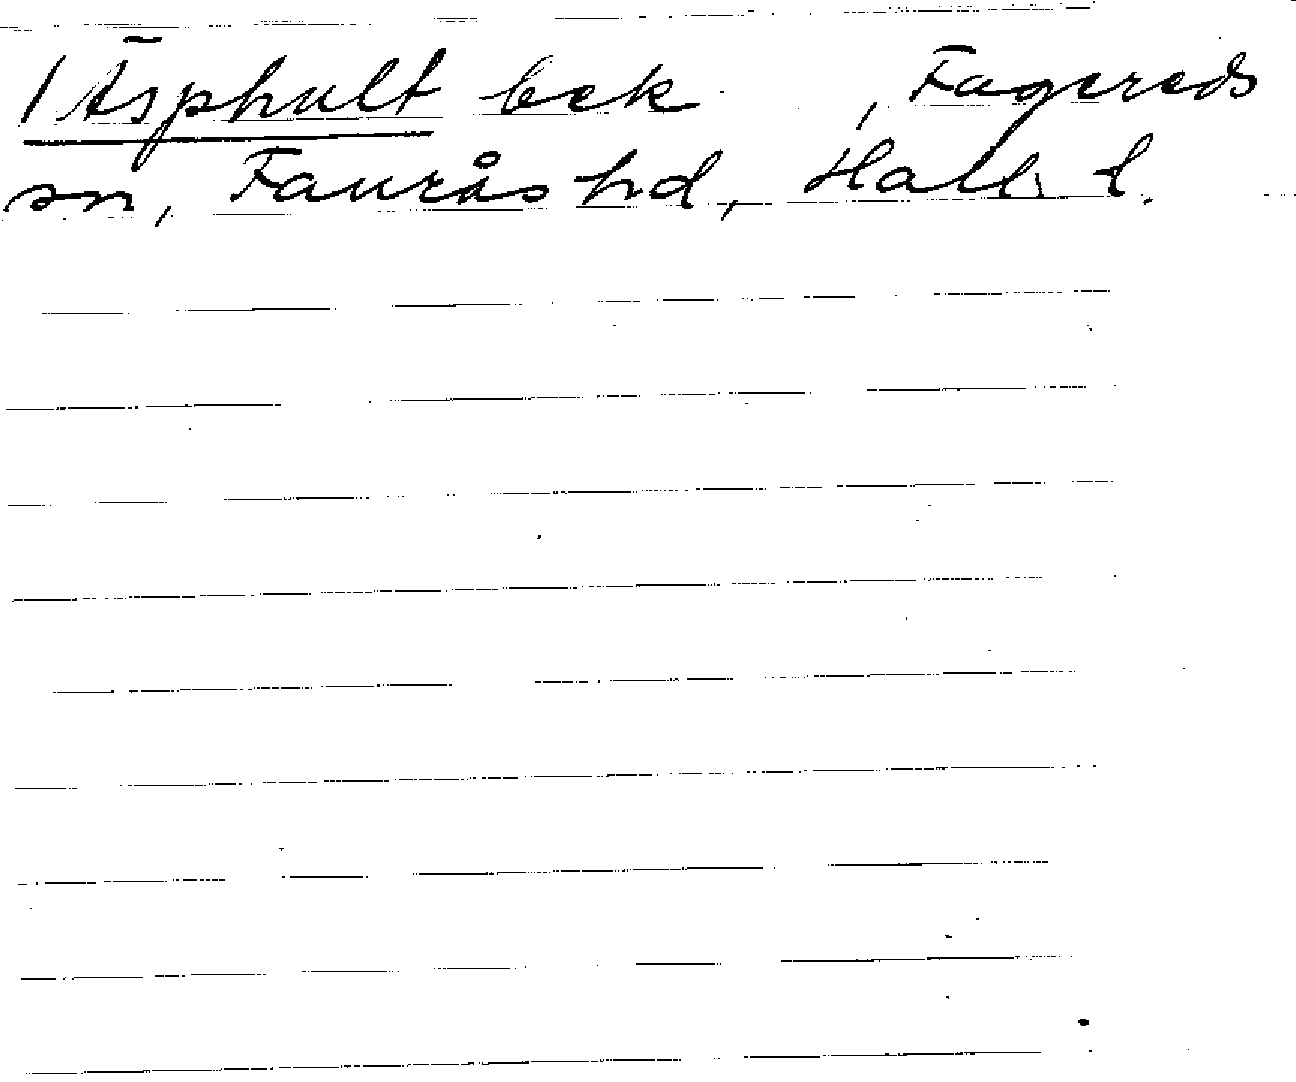 1 Äsphult bek , Fagereds
sn, Fauråshd, Hall. l.